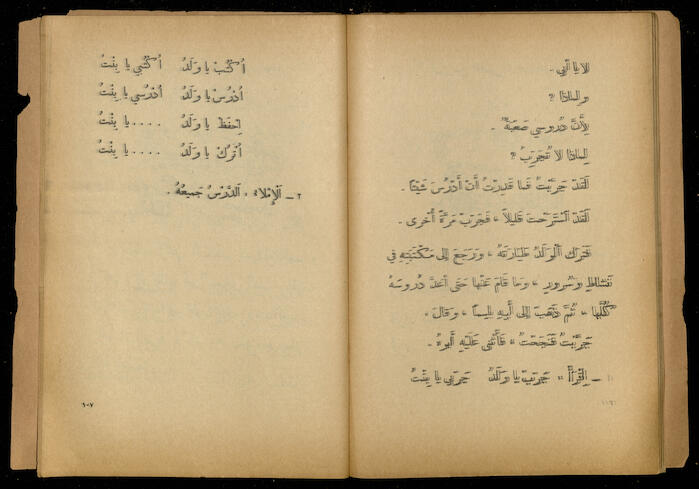 لا يا أبي .
ولماذا ؟
لِأَنَّ دُروسي صَعْبَةٌ .
لِماذا لا تُجَرِّبُ ؟
لَقَدْ جَرَّبْتُ فَما قَدِرْتُ أَنْ أَدْرُسَ شَيْئًا .
لَقَدْ اسْتَرَحْتَ قَليلاً ، فَجَرِّبْ مَرَّةً أُخْرى .
فَتَرَكَ الْوَلَدُ طَيَّارَتَهُ ، وَرَجَعَ إِلى مَكْتَبَتِهِ في
نَشاطٍ وَسُرورٍ ، وَما قامَ عَنْها حَتّى أَعَدَّ دُروسَهُ
كُلَّها ، ثُمَّ ذَهَبَ إِلى أَبيهِ ، وَقالَ ،
جَرَّبْتُ فَنَجَحْتُ ، فَأَثْنى عَلَيْهِ أَبوهُ .
١ ــ اِقْرَأْ ، جَرِّبْ يا وَلَدُ جَرِّبي يا بِنْتُ
أُكْتُبْ يا وَلَدُ أُكْتُبي يا بِنْتُ
أُدْرُسْ يا وَلَدُ أُدْرُسي يا بِنْتُ
اِحْفَظْ يا وَلَدُ .... يا بِنْتُ
أُتْرُكْ يا وَلَدُ .... يا بِنْتُ
٢ ــ اَلْإِمْلاءُ ، اَلدَّرْسُ جَميعُهُ .
١٠٧